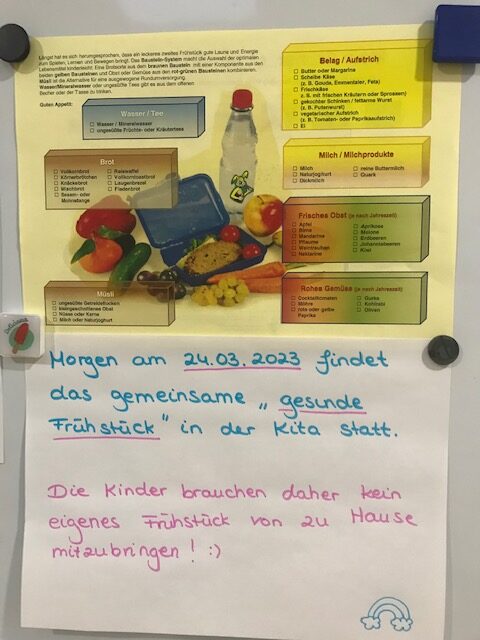 Längst hat es sich herumgesprochen, dass ein leckeres zweites Frühstück gute Laune und Energie
zum Spielen, Lernen und Bewegen bringt. Das Baustein-System macht die Auswahl der optimalen
Lebensmittel kinderleicht: Eine Brotsorte aus dem braunen Baustein mit einer Komponente aus den
beiden gelben Bausteinen und Obst oder Gemüse aus den rot-grünen Bausteinen kombinieren.
Müsli ist die Alternative für eine ausgewogene Rundumversorgung.
Wasser/Mineralwasser oder ungesüßte Tees gibt es aus dem offenen
Becher oder der Tasse zu trinken.
Guten Appetit:
Wasser / Tee
Wasser / Mineralwasser
ungesüßte Früchte- oder Kräutertees
Brot
Vollkornbrot
Körnerbrötchen
Knäckebrot
Mischbrot
Sesam- oder
Mohnstange
Reiswaffel
Vollkorntoastbrot
Laugenbrezel
Fladenbrot
Müsli
ungesüßte Getreideflocken
kleingeschnittenes Obst
Nüsse oder Kerne
Milch oder Naturjoghurt
Belag / Aufstrich
Butter oder Margarine
Scheibe Käse
(z. B. Gouda, Emmentaler, Feta)
Frischkäse
z. B. mit frischen Kräutern oder Sprossen)
gekochter Schinken / fettarme Wurst
(z. B. Putenwurst)
vegetarischer Aufstrich
(z. B. Tomaten- oder Paprikaaufstrich)
Ei
Milch / Milchprodukte
Milch
Naturjoghurt
Dickmilch
reine Buttermilch
Quark
Frisches Obst (je nach Jahreszeit)
Apfel
Birne
Mandarine
Pflaume
Weintrauben
Nektarine
Aprikose
Melone
Erdbeeren
Johannisbeeren
Kiwi
Rohes Gemüse (je nach Jahreszeit)
Cocktailtomaten
Möhre
rote oder gelbe
Paprika
Gurke
Kohlrabi
Oliven
Morgen am 24.03.2023 findet
das gemeinsame „gesunde
Frühstück" in der Kita statt.
Die Kinder brauchen daher kein
eigenes Frühstück von zu Hause
mitzubringen! :)